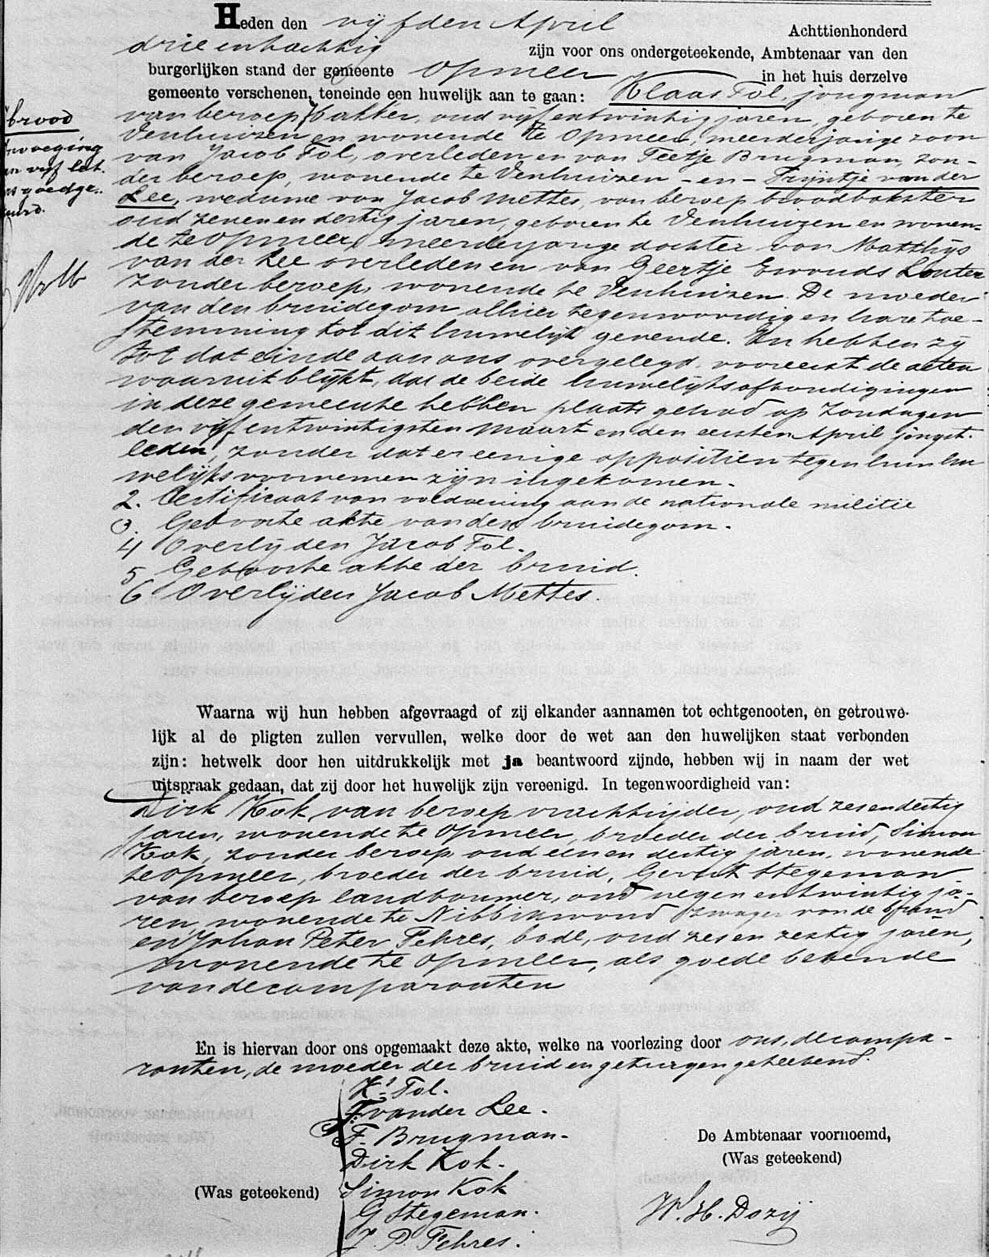 Heden den vijfden April Achttienhonderd
drie en tachtig zijn voor ons ondergeteekende, Ambtenaar van den
burgerlijken stand der gemeente Opmeer in het huis derzelve
gemeente verschenen, teneinde een huwelijk aan te gaan: Klaas Tol, jongman
van beroep bakker, oud vijf entwintig jaren, geboren te
Venhuizen en wonende te Opmeer, meerderjarige zoon
van Jacob Tol, overleden en van Feetje Brugman, zon-
der beroep, wonende te Venhuizen - en - Trijntje van der
Lee, weduwe van Jacob Mettes, van beroep broodbakster
oud zeven en dertig jaren, geboren te Venhuizen en wonen-
de te Opmeer, meerderjarige dochter van Matthijs
van der Lee overleden en van Geertje Ewouds
zonder beroep, wonende te Venhuizen. De moeder
van den bruidegom alhier tegenwoordig en hare toe-
stemming tot dit huwelijk gevende. En hebben zij
tot dat einde aan ons overgelegd: vooreerst de acten
waaruit blijkt, dat de beide huwelijksafkondigingen
in deze gemeente hebben plaats gehad op Zondagen
den vijf entwintigsten Maart en den eersten April jongst-
leden, zonder dat er eenige oppositien tegen hun hu
welijksvoornemen zijn ingekomen.
2. Certificaat van voldoening aan de nationale militie
3. Geboorte akte van den bruidegom.
4 Overlijden Jacob Tol.
5 Geboorte akte der bruid.
6 Overlijden Jacob Mettes.
brood
invoeging
vijf let.
goedge-
keurd.
Waarna wij hun hebben afgevraagd of zij elkander aannamen tot echtgenooten, en getrouwe-
lijk al de pligten zullen vervullen, welke door de wet aan den huwelijken staat verbonden
zijn: hetwelk door hen uitdrukkelijk met ja beantwoord zijnde, hebben wij in naam der wet
uitspraak gedaan, dat zij door het huwelijk zijn vereenigd. In tegenwoordigheid van:
Dirk Kok van beroep vrachtrijder, oud zesendertig
jaren, wonende te Opmeer, broeder der bruid, Simon
Kok, zonder beroep oud een en dertig jaren, wonende
te Opmeer, broeder der bruid, Gerrit Stegeman
van beroep landbouwer, oud negen entwintig ja-
ren, wonende te Nibbixwoud zwager van de bruid
en Johan Peter Fehres, bode, oud zes en zestig jaren,
wonende te Opmeer, als goede bekende
van de comparanten
En is hiervan door ons opgemaakt deze akte, welke na voorlezing door ons, de compa-
ranten, de moeder der bruid en getuigen geteekend
K. Tol.
T. van der Lee.
F. Brugman.
Dirk Kok.
(Was geteekend) Simon Kok
G Stegeman.
J. P. Fehres.
De Ambtenaar voornoemd,
(Was geteekend)
W. H. Dozij